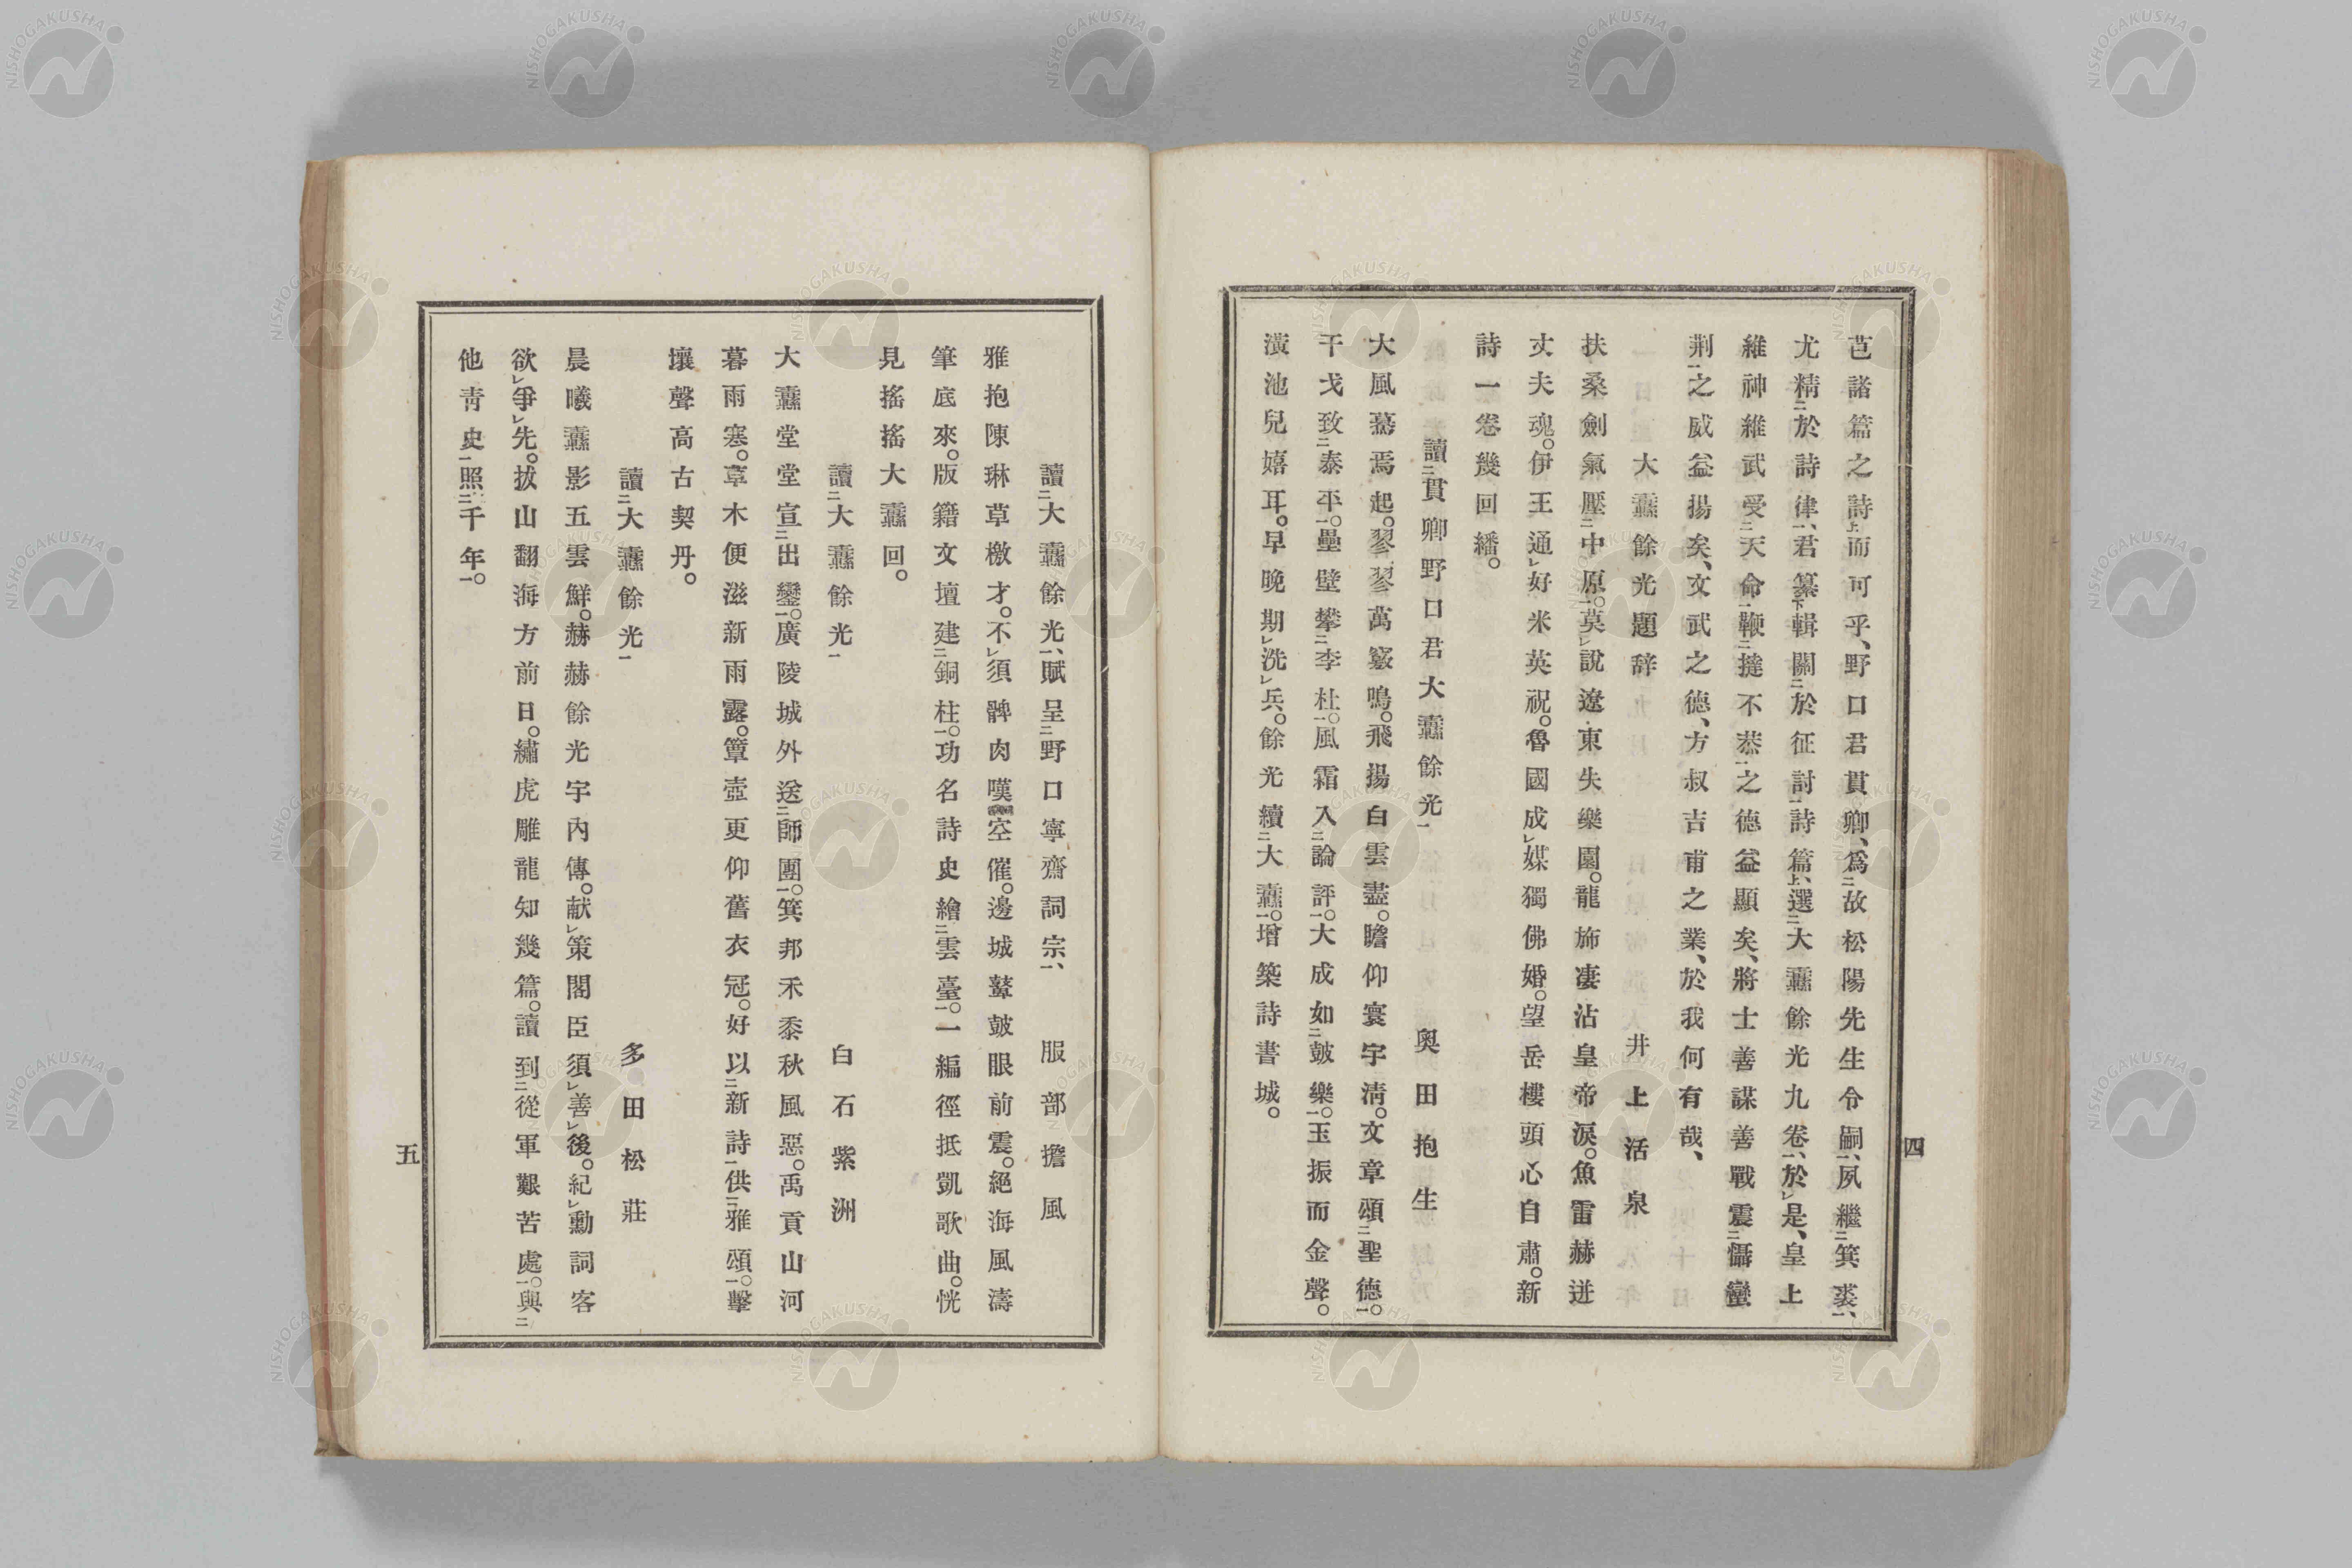 芑諸篇之詩上而可乎、野口君貫卿、爲二故松陽先生令嗣一、夙繼二箕裘一、
尤精二於詩律一、君纂下輯關二於征討一詩篇上、選二大纛餘光九卷一、於レ是、皇上
維神維武受二天命一鞭二撻不恭一之德益顯矣、將士善謀善戰震二懾蠻
荆一之威益揚矣、文武之德、方叔吉甫之業、於我何有哉、
大纛餘光題辞　井上活泉
扶桑劍氣壓二中原一。莫レ說遼東失樂園。龍旆凄沾皇帝淚。魚雷赫迸
丈夫魂。伊王通レ好米英祝。魯國成レ媒獨佛婚。望岳樓頭心自肅。新
詩一卷幾回繙。
讀二貫卿野口君大纛餘光一　奧田抱生
大風驀焉起。翏翏萬竅鳴。飛揚白雲盡。瞻仰寰宇淸。文章頌二聖德一。
干戈致二泰平一。壘壁攀二李杜一。風霜入二論評一。大成如二鼓樂一。玉振而金聲。
潢池兒嬉耳。早晚期レ洗レ兵。餘光續二大纛一。增築詩書城。
四
讀二大纛餘光一、賦呈二野口寧齋詞宗一、　服部擔風
雅抱陳琳草檄才。不レ須髀肉嘆空催。邊城鼙鼓眼前震。絕海風濤
筆底來。版籍文壇建二銅柱一。功名詩史繪二雲臺一。一編徑抵凱歌曲。恍
見搖搖大纛回。
讀二大纛餘光一　白石紫洲
大纛堂堂宣二出鑾一。廣陵城外送二師團一。箕邦禾黍秋風惡。禹貢山河
暮雨寒。草木便滋新雨露。簞壺更仰舊衣冠。好以二新詩一供二雅頌一。擊
壤聲高古契丹。
讀二大纛餘光一　多田松莊
晨曦纛影五雲鮮。赫赫餘光宇內傳。献レ策閣臣須レ善レ後。紀レ勳詞客
欲レ爭レ先。拔山翻海方前日。繡虎雕龍知幾篇。讀到二從軍艱苦處一。與二
他靑史一照二千年一。
五